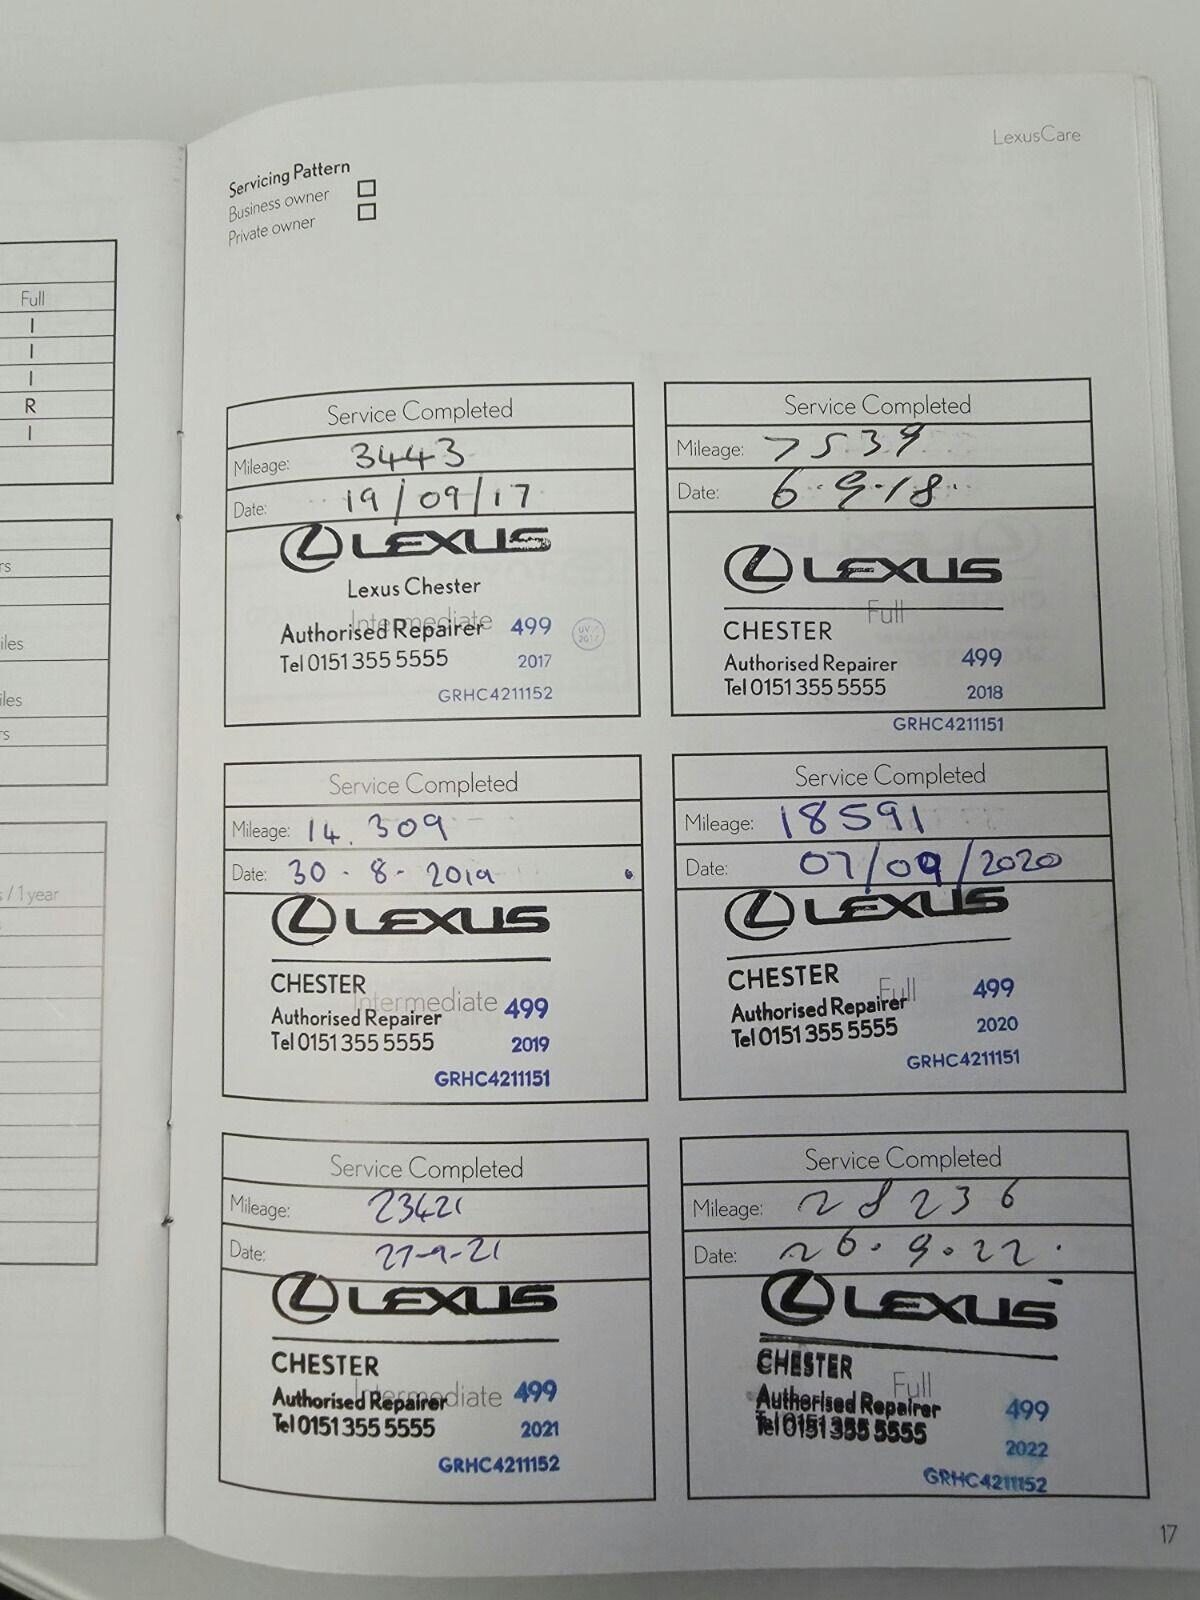 LexusCare
Servicing Pattern
Business owner
Private owner
Full
I
I
I
R
I
rs
iles
iles
rs
s / 1 year
Service Completed
Mileage: 3443
Date: 19/09/17
LEXUS
Lexus Chester
Intermediate
Authorised Repairer 499
Tel 0151 355 5555 2017
UV 2017
GRHC4211152
Service Completed
Mileage: 7539
Date: 6.9.18.
LEXUS
Full
CHESTER
Authorised Repairer 499
Tel 0151 355 5555 2018
GRHC4211151
Service Completed
Mileage: 14.309
Date: 30-8-2019
LEXUS
CHESTER
Intermediate 499
Authorised Repairer
Tel 0151 355 5555 2019
GRHC4211151
Service Completed
Mileage: 18591
Date: 07/09/2020
LEXUS
CHESTER
Full 499
Authorised Repairer
Tel 0151 355 5555 2020
GRHC4211151
Service Completed
Mileage: 23421
Date: 27-9-21
LEXUS
CHESTER
Intermediate 499
Authorised Repairer
Tel 0151 355 5555 2021
GRHC4211152
Service Completed
Mileage: 28236
Date: 26.9.22.
LEXUS
CHESTER
Full
Authorised Repairer 499
Tel 0151 355 5555 2022
GRHC4211152
17